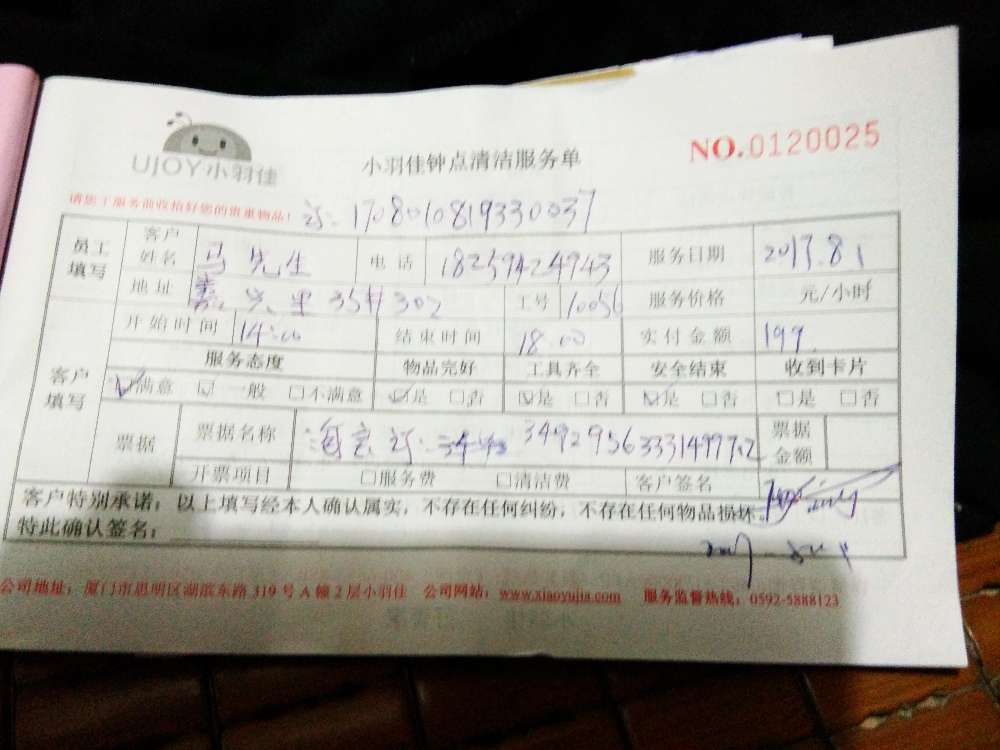 UJOY小羽佳
小羽佳钟点清洁服务单
NO.0120025
请您于服务前收拾好您的贵重物品！
订：170801081933003​7
员工填写 客户姓名 马先生 电话 18259424943 服务日期 2017.8.1
地址 嘉 里 35# 302 工号 10056 服务价格 元/小时
客户填写 开始时间 14:00 结束时间 18:00 实付金额 199
服务态度 物品完好 工具齐全 安全结束 收到卡片
☑满意 ☑一般 □不满意 ☑是 □否 ☑是 □否 ☑是 □否 □是 □否
票据 票据名称 淘宝订： 票据金额
开票项目 □服务费 □清洁费 客户签名
客户特别承诺：以上填写经本人确认属实，不存在任何纠纷，不存在任何物品损坏。
特此确认签名：
公司地址：厦门市思明区湖滨东路319号A幢2层小羽佳 公司网站：www.xiaoyujia.com 服务监督热线：0592-5888123